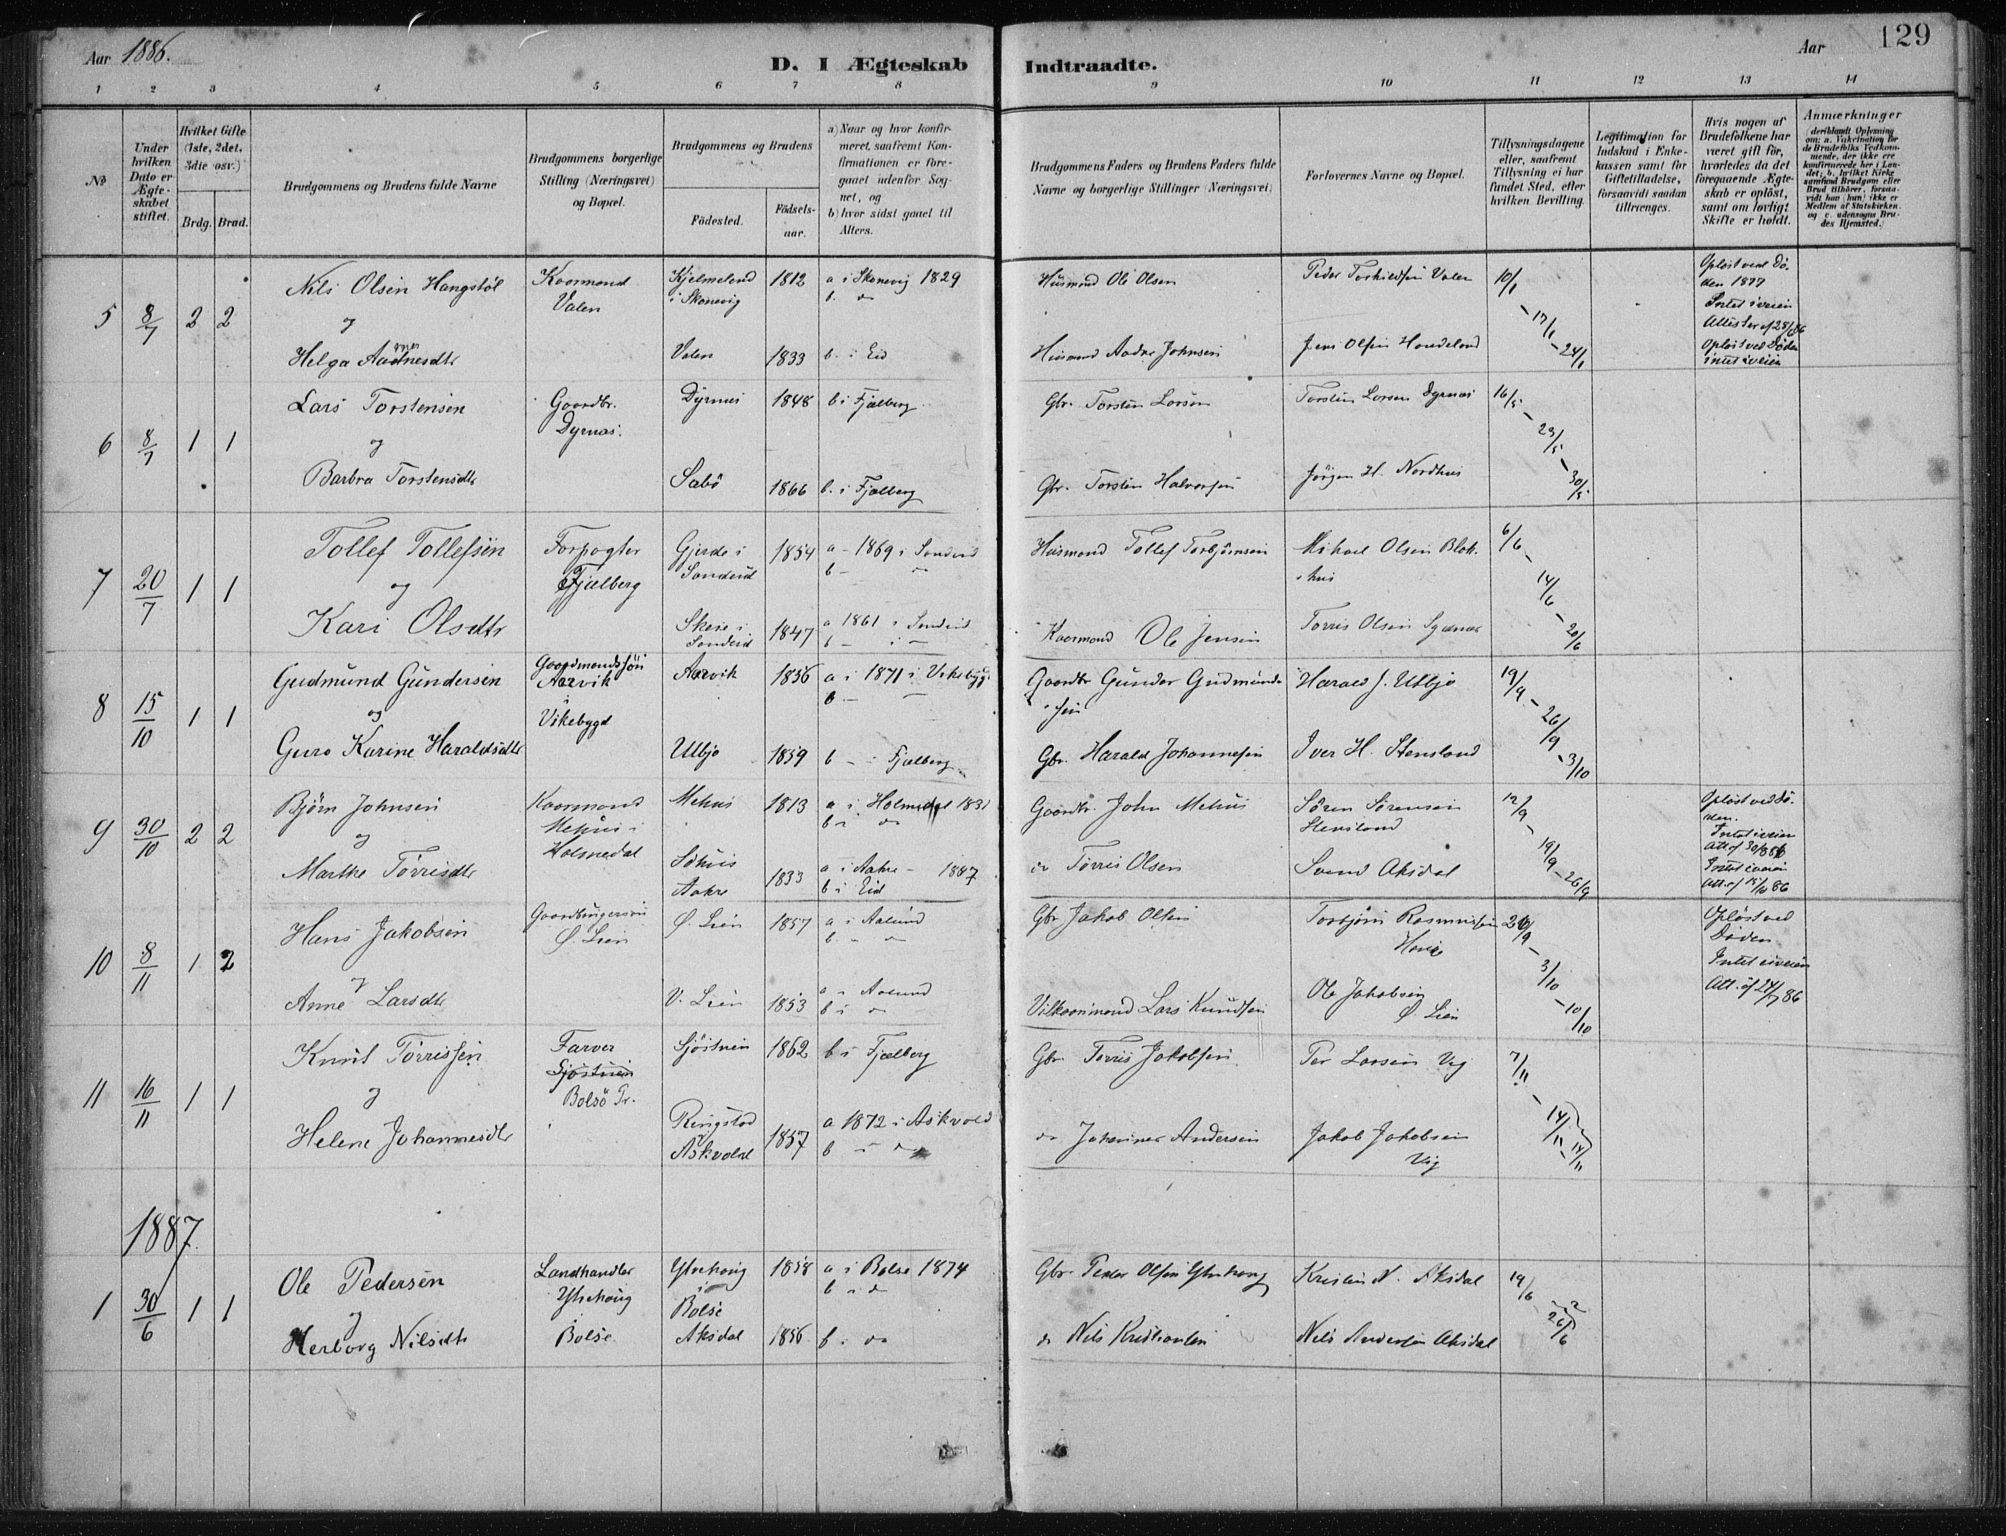 Aar 1886.
D. I Ægteskab Indtraadte.
Aar
129
1 2 3 4 5 6 7 8 9 10 11 12 13 14
No
Under hvilken Dato er Ægteskabet stiftet.
Hvilket Gifte (1ste, 2det, 3die osv.)
Brdg. Brud.
Brudgommens og Brudens fulde Navne
Brudgommens borgerlige Stilling (Næringsvei) og Bopæl.
Brudgommens og Brudens
Födested.
Födselsaar.
a) Naar og hvor konfirmeret, saafremt Konfirmationen er foregaaet udenfor Sognet, og
b) hvor sidst gaaet til Alters.
Brudgommens Faders og Brudens Faders fulde Navne og borgerlige Stillinger (Næringsvei).
Forlovernes Navne og Bopæl.
Tillysningsdagene eller, saafremt Tillysning ei har fundet Sted, efter hvilken Bevilling.
Legitimation for Indskud i Enkekassen samt for Giftetilladelse, forsaavidt saadan tiltrænges.
Hvis nogen af Brudefolkene har været gift för, hvorledes da det foregaaende Ægteskab er oplöst, samt om lovligt Skifte er holdt.
Anmærkninger
5 8/7 2 2
Nils Olsen Hangstöl
og
Helga Aadnesdtr
Kaarmand
Valen
Kjelmeland i Skonevig 1812 a i Skonevig 1829
b. do
Valen 1833 b. i Eid
Husmand Ole Olsen
Husmand Aadne Johnsen
Peder Torkildsen Valen
Jens Olsen Handeland
10/1 - 17/1 - 24/1
Oplöst ved Döden 1877
Intet iveien
Oplöst ved Döden
intet iveien
6 8/7 1 1
Lars Torstensen
og
Barbra Torstensdtr
Gaardbr.
Dyrnæs.
Dyrnæs 1848 b i Fjælberg
Sæbö 1866 b. i Fjælberg
Gbr. Torsten Larsen
Gbr. Torsten Halvorsen
Torsten Larsen Dyrnæs
Jörgen H. Nordhus
16/5 - 23/5 - 30/5
7 20/7 1 1
Tollef Tollefsen
og
Kari Olsdtr
Forpagter
Fjælberg
Gjerde i Sandeid 1854 a - 1869 i Sandeid
b - do
Skeie i Sandeid 1847 a 1861 i Sandeid
b - i -
Husmand Tollef Torbjörnsen
Kaarmand Ole Jensen
Mikael Olsen Blokhus
Torris Olsen Sydnæs
6/6 - 14/6 - 20/6
8 15/10 1 1
Gudmund Gundersen
og
Guro Karine Haraldsdtr
Gaardmandssön
Aarvik
Vikebygd
Aarvik 1856 a i 1871 i Vikebygd
b - -
Utbjo 1859 b - i Fjælberg
Gaardbr Gunder Gudmundsen
Gbr. Harald Johannesen
Harald J. Utbjo
Iver H. Stensland
19/9 - 26/9 - 3/10
9 30/10 2 2
Björn Johnsen
og
Marthe Törrisdtr
Kaarmand
Mehus i
Holmedal
Mehus 1813 a i Holmedal 1831
b i do
Aakre 1833 a i Aakre - 1887
b i Eid
Gaardbr. John Mehus
do Törris Olsen
Sören Sörensen
Stensland
Svend Aksdal
12/9 - 19/9 - 26/9
Oplöst ved Döden.
Intet iveien
Intet iveien
10 8/11 1 2
Hans Jakobsen
og
Anne Larsdtr
Gaardbrugersön
Ö. Lien
Ö. Lien 1857 a i Aalund
b - do
V. Lien 1853 a i Aalund
b i do
Gbr Jakob Olsen
Vilkaarmand Lars Knudsen
Torbjörn Rasmussen
Ole Jakobsen
Ö Lien
26/9 - 3/10 - 10/10
Oplöst ved
Döden
Intet iveien
11 16/11 1 1
Knut Törrissen
og
Helene Johannesdtr
Farver
Sjöstuen
Bolsö Pr.
Sjöstuen 1862 b i Fjælberg
Ringstad Askvold 1857 a 1872 i Askvold
b - do
Gbr Torris Jakobsen
do Johannes Andersen
Per Larsen Vig
Jakob Jakobsen
Vig
7/11 - 14/11 - 14/11
1887.
1 30/6 1 1
Ole Pedersen
og
Herborg Nilsdtr
Landhandler
Ytrehaug
Bolsö
Ytrehaug i Bolsö 1858 a i Bolsö 1874
b i do
Aksdal 1856 b. do
Gbr. Peder Olsen Ytrehaug
do Nils Kristiansen
Kristen N. Aksdal
Nils Andersen Aksdal
19/6 - 26/6